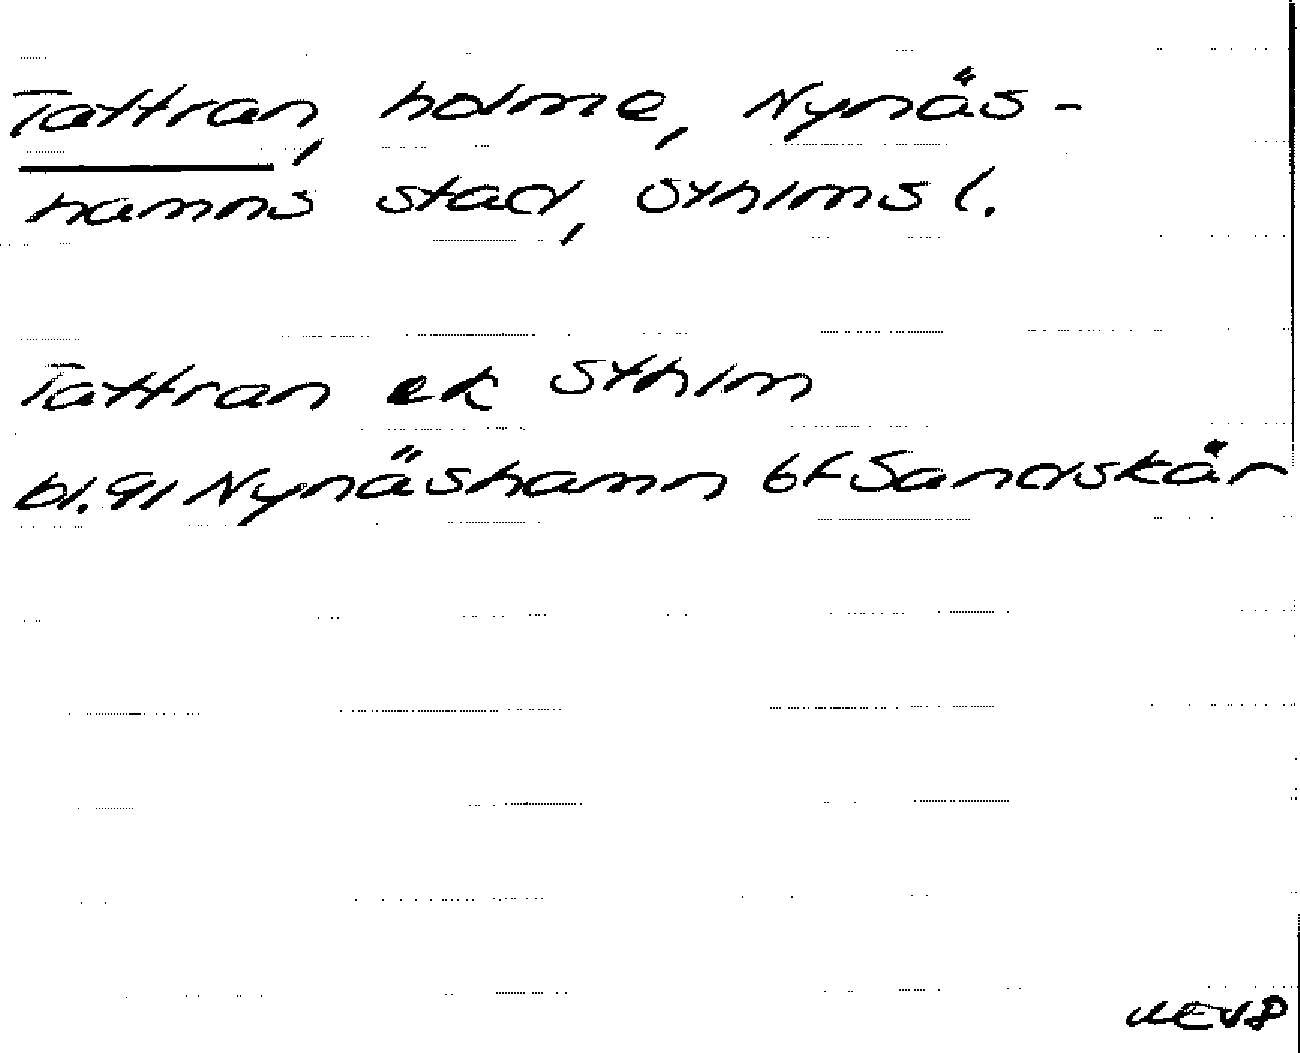 Tattran, holme, Nynäs-
hamns stad, Sthlms l.
Tattran ek Sthlm
bl. 91 Nynäshamn 6f Sandskär